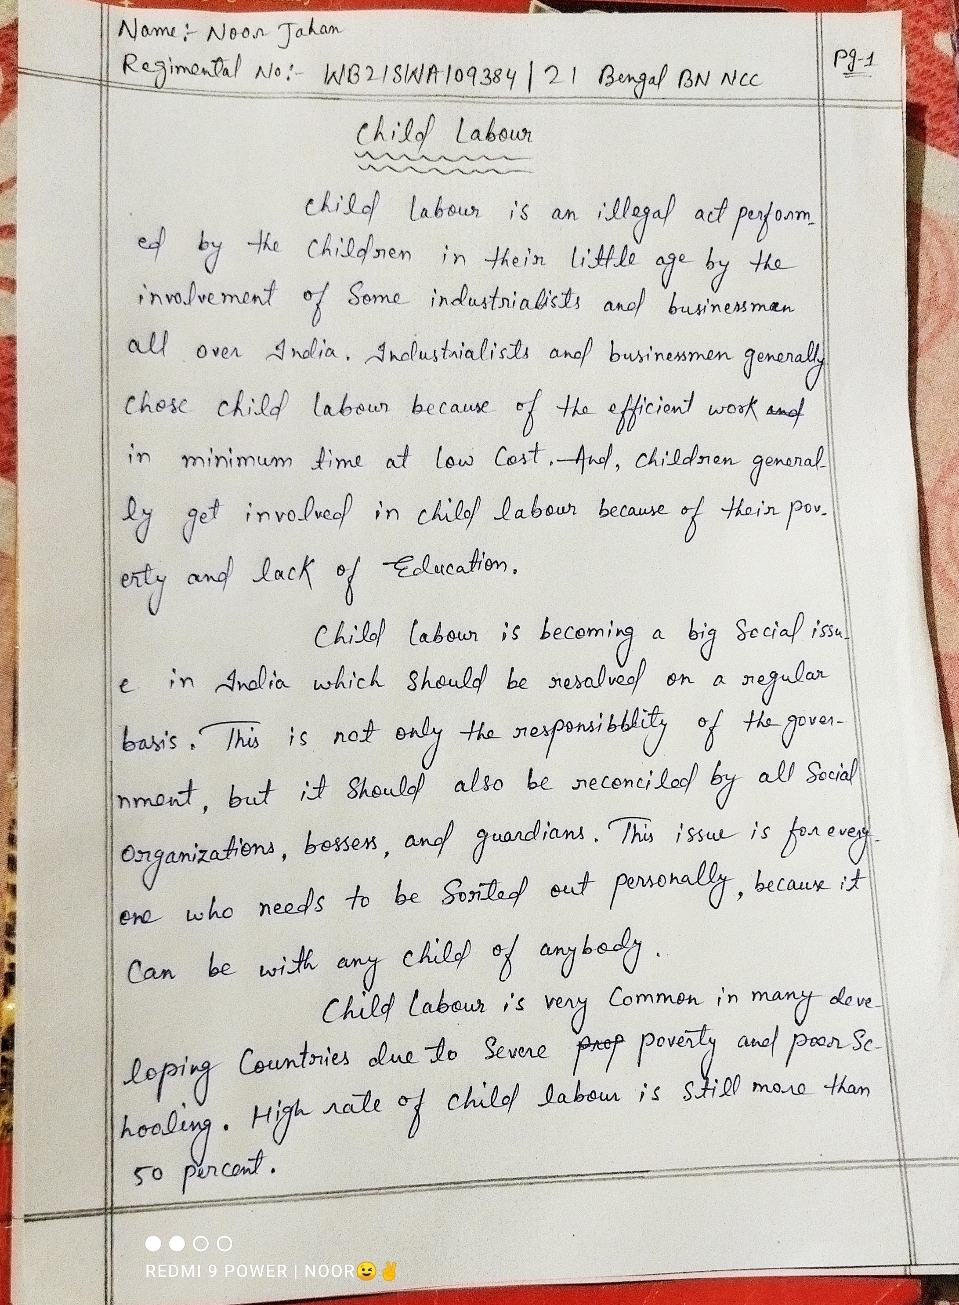 Name:- Noor Jahan
Regimental No:- WB21SWA109384 | 21 Bengal BN NCC
Pg-1
Child Labour
Child Labour is an illegal act perform-
ed by the Children in their little age by the
involvement of Some industrialists and businessman
all over India. Industrialists and businessmen generally
chose child labour because of the efficient work and
in minimum time at low Cost. And, children general-
ly get involved in child labour because of their pov-
erty and lack of Education.
Child Labour is becoming a big Social issu-
e in India which should be resolved on a regular
basis. This is not only the responsibblity of the gover-
nment, but it Should also be reconciled by all Social
Organizations, bossers, and guardians. This issue is for every-
one who needs to be Sorited out personally, because it
Can be with any child of anybody.
Child Labour is very Common in many deve-
loping Countries due to Severe prop poverty and poor Sc-
hooling. High rate of child labour is still more than
50 percent.
REDMI 9 POWER | NOOR😉✌️